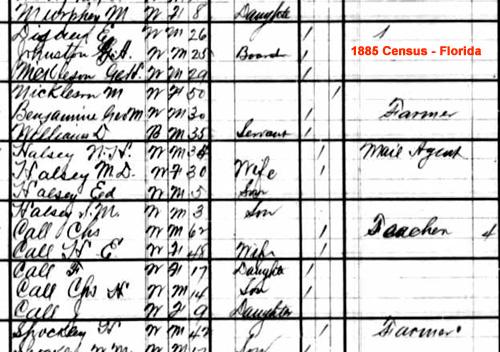 Murphey M W F 8 Daughte
E W M 26 1
1885 Census - Florida
Johnston W M 25 Board
W M 29
Nickleson M W F 50 1
Benjamine Geo M W M 30 Farmer
Williams D B M 35 Servant 1
Halsey W. H. W M 38 1 Mail Agent
Halsey M. D. W F 30 Wife 1
Halsey Ed W M 5 Son 1
Halsey M. W M 3 Son 1
Call Chs W M 62 1 Teacher 4
Call H E W F 48 Wife 1
Call F W F 17 Daughte 1
Call Chs H W M 14 Son 1
Call J W F 9 Daughter 1
Spockley H W M 42 1 Farmer
W M Son